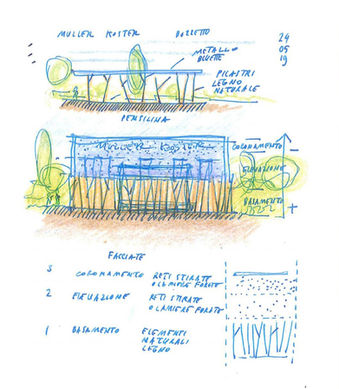 MULLER KOSTER BOZZETTO 24
05
19
METALLO
BLUETTE
PILASTRI
LEGNO
NATURALE
PENSILINA
Muller Koster
CORONAMENTO
ELEVAZIONE
BASAMENTO
FACCIATE
3 CORONAMENTO RETI STIRATE
O LAMIERE FORATE
2 ELEVAZIONE RETI STIRATE
O LAMIERE FORATE
1 BASAMENTO ELEMENTI
NATURALI
LEGNO